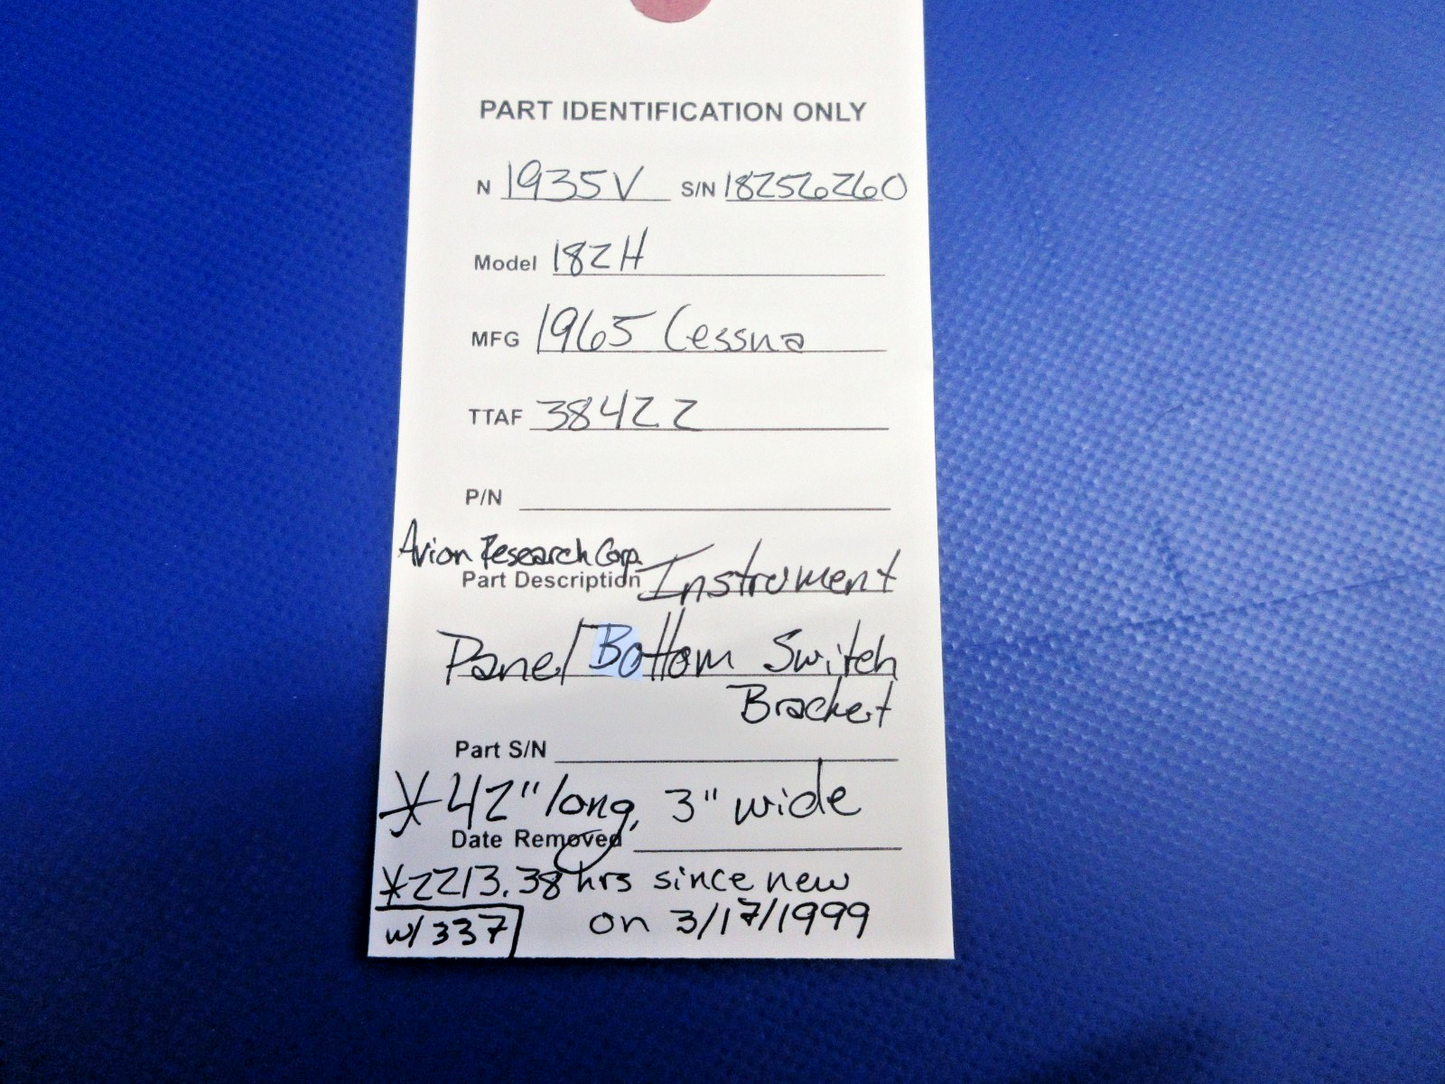 PART IDENTIFICATION ONLY
N 1935V S/N 18256260
Model 182H
MFG 1965 Cessna
TTAF 3842.2
P/N
Avion Research Corp.
Part Description Instrument
Panel Bottom Switch
Bracket
Part S/N
*42" long, 3" wide
Date Removed
*2213.38 hrs since new
w/ 337 on 3/17/1999